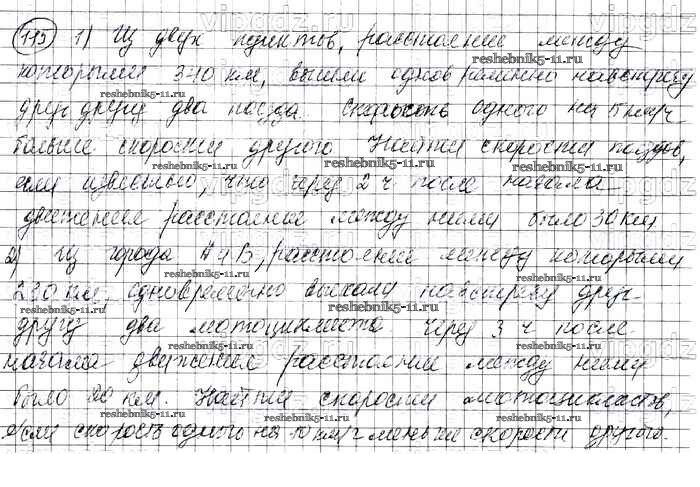 195 1) Из двух пунктов, расстояние между
которыми 340 км, вышли одновременно навстречу
друг другу два поезда. Скорость одного на 5 км/ч
больше скорости другого. Найти скорости поездов,
если известно, что через 2 ч после начала
движения расстояние между ними было 30 км
2) Из города А и В, расстояние между которыми
230 км, одновременно выехали навстречу друг
другу два мотоциклиста. Через 3 ч после
начала движения расстояние между ними
было 20 км. Найти скорости мотоциклистов,
если скорость одного на 10 км/ч меньше скорости другого.
reshebnik5-11.ru
vipgdz.ru